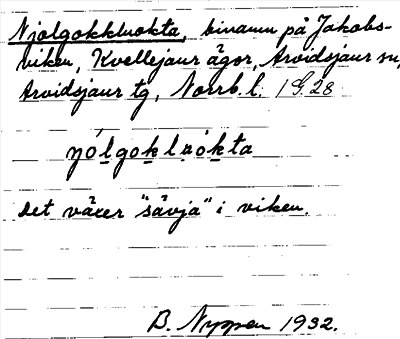 Njolgokkluokta, binamn på Jakobs-
viken, Kvellejaur ägor, Arvidsjaur sn,
Arvidsjaur tg, Norrb. l. 1928
njólgokluókta
Det växer "sävja" i viken.
B. Nyppen 1932.